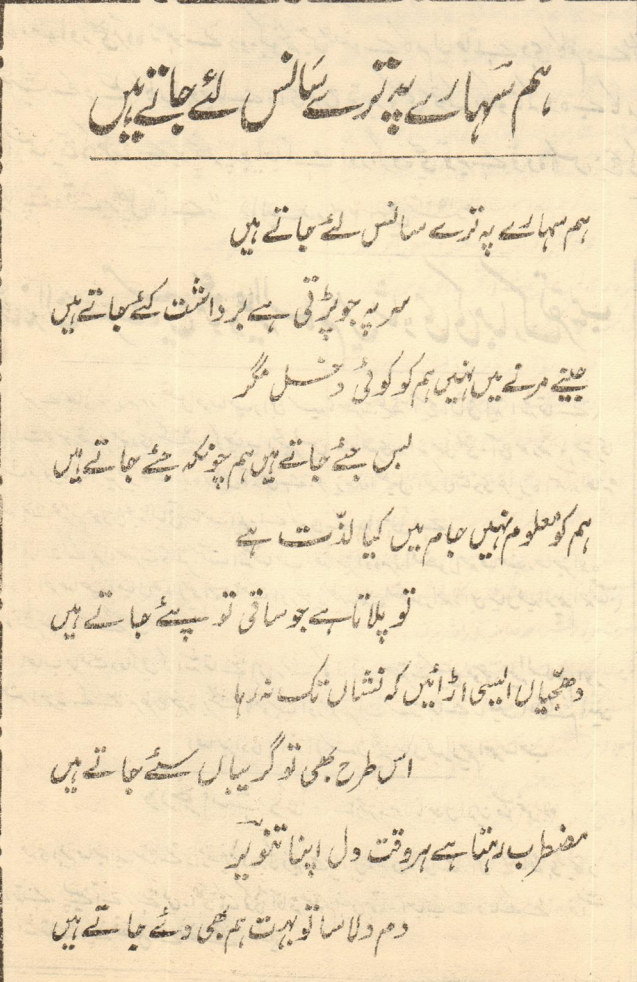 ہم سہارے پہ ترے سانس لئے جاتے ہیں
ہم سہارے پہ ترے سانس لئے جاتے ہیں
سر پہ جو پڑتی ہے برداشت کئے جاتے ہیں
جینے مرنے میں نہیں ہم کو کوئی دخل مگر
بس جئے جاتے ہیں ہم چونکہ جئے جاتے ہیں
ہم کو معلوم نہیں جام میں کیا لذّت ہے
تو پلاتا ہے جو ساقی تو پیئے جاتے ہیں
دھجّیاں ایسی اڑائیں کہ نشاں تک نہ رہا
اس طرح بھی تو گریباں سئے جاتے ہیں
مضطرب رہتا ہے ہر وقت دل اپنا تنویرؔ
دم دلاسا تو بہت ہم بھی دئے جاتے ہیں